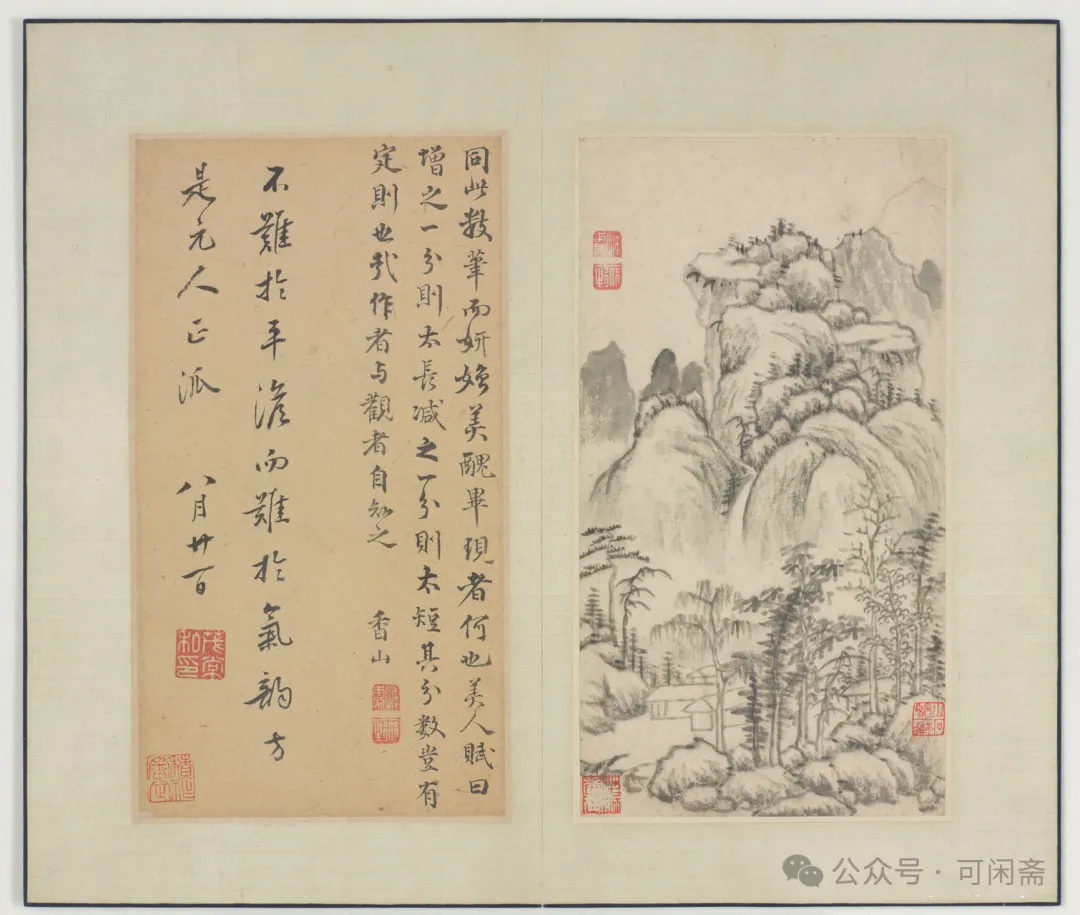 同此数筆而妍媸美醜畢現者何也美人賦曰
增之一分則太長減之一分則太短其分数豈有
定則也哉作者与觀者自知之
香山
不難於平澹而難於氣韵方
是元人正派
八月廿一日
公众号·可闲斋